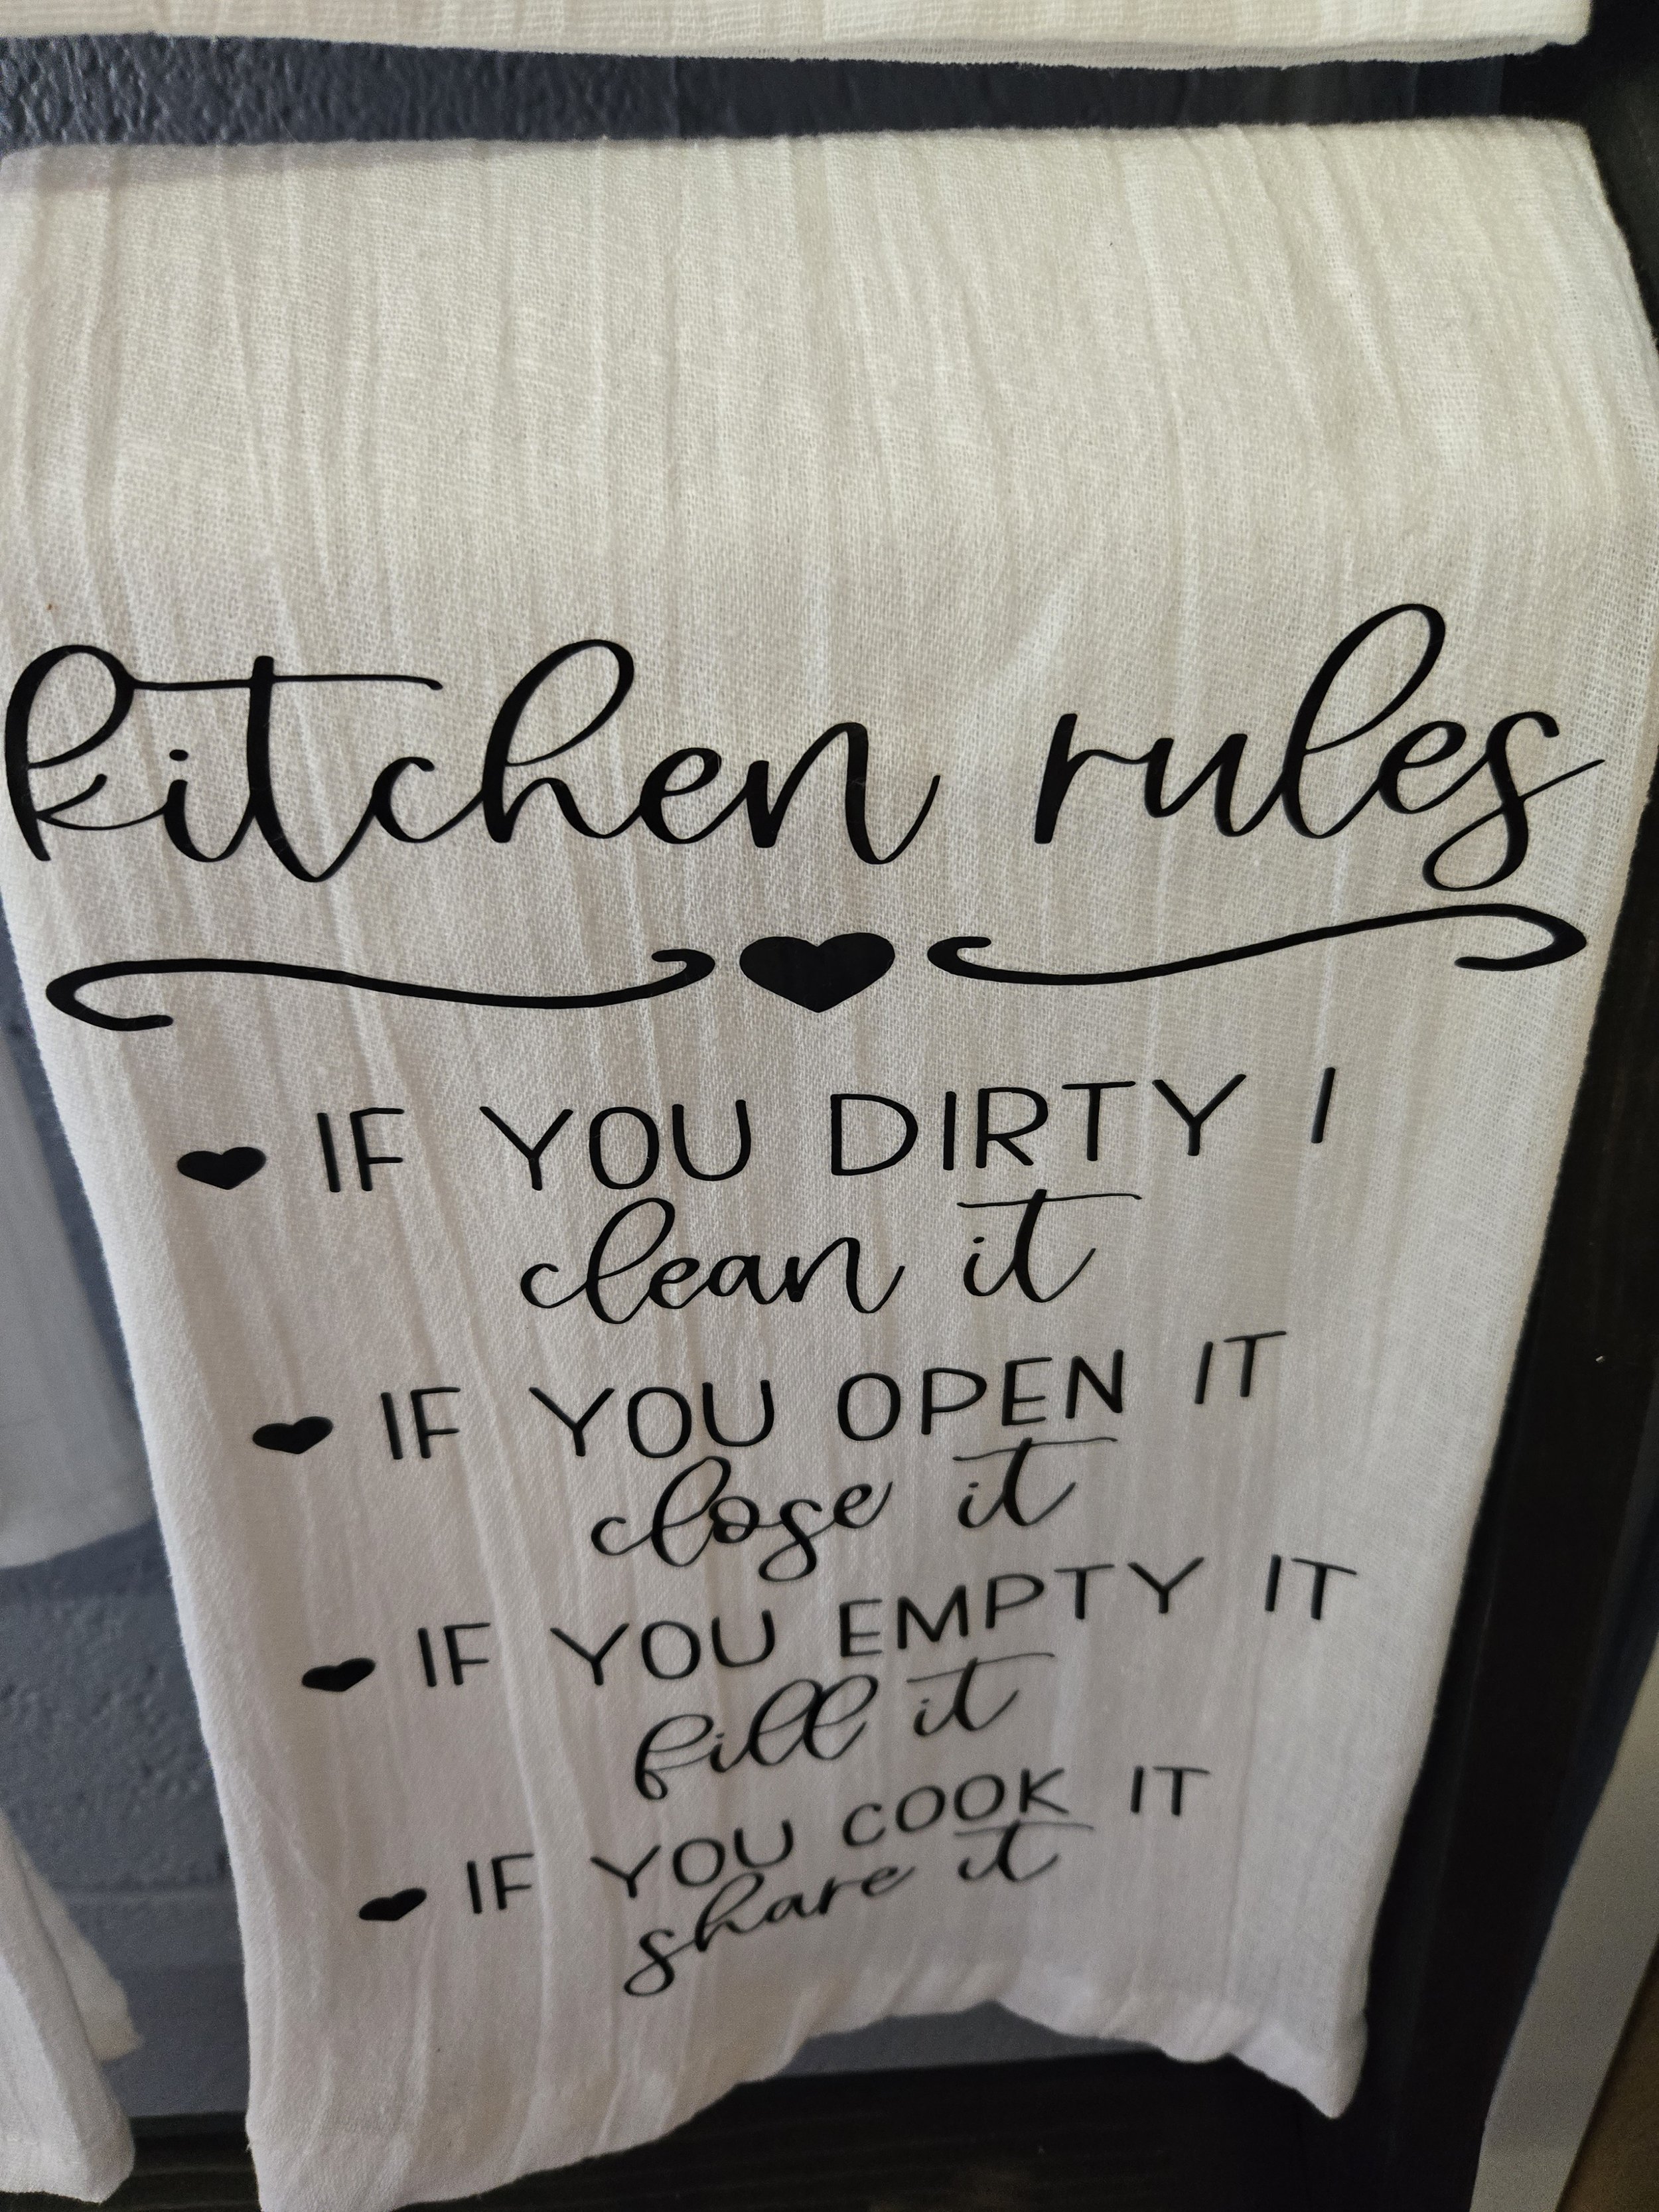 kitchen rules
IF YOU DIRTY I
clean it
IF YOU OPEN IT
close it
IF YOU EMPTY IT
fill it
IF YOU COOK IT
share it